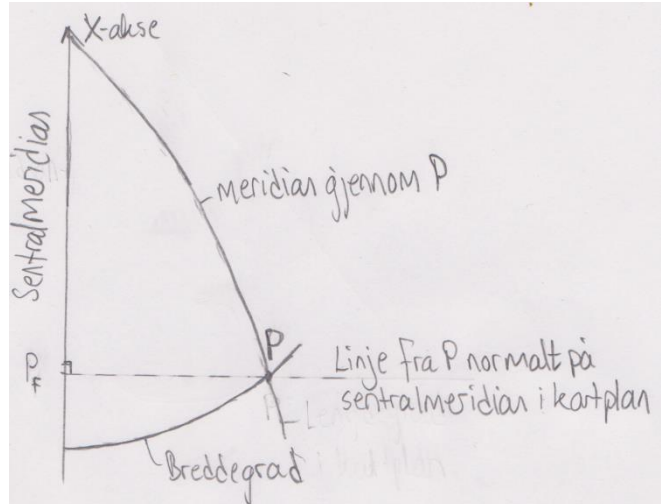 X-akse
Sentralmeridian
meridian gjennom P
P
Linje fra P normalt på
sentralmeridian i kartplan
Breddegrad